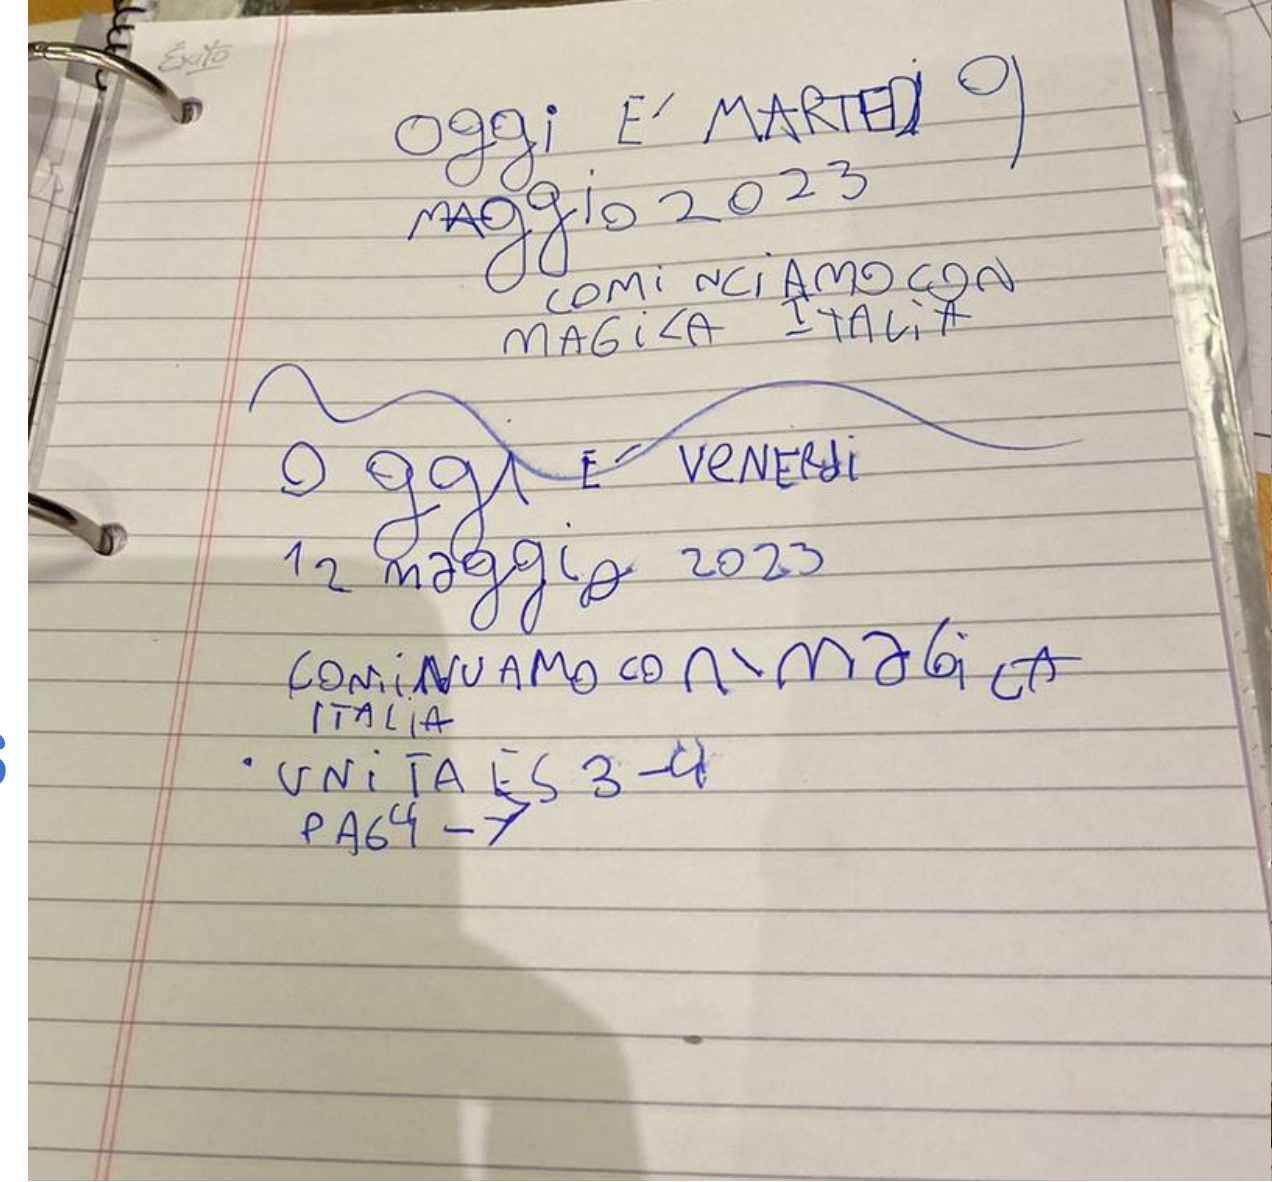 Éxito
Oggi E' MARTEDì 9
MAggio 2023
COMiNCiAMO CON
MAGiCA ITALiA
Oggi E' VENERdi
12 maggio 2023
COMiNUAMO CON MaGiCA
ITALiA
· UNiTA ES 3-4
PAG 4-7